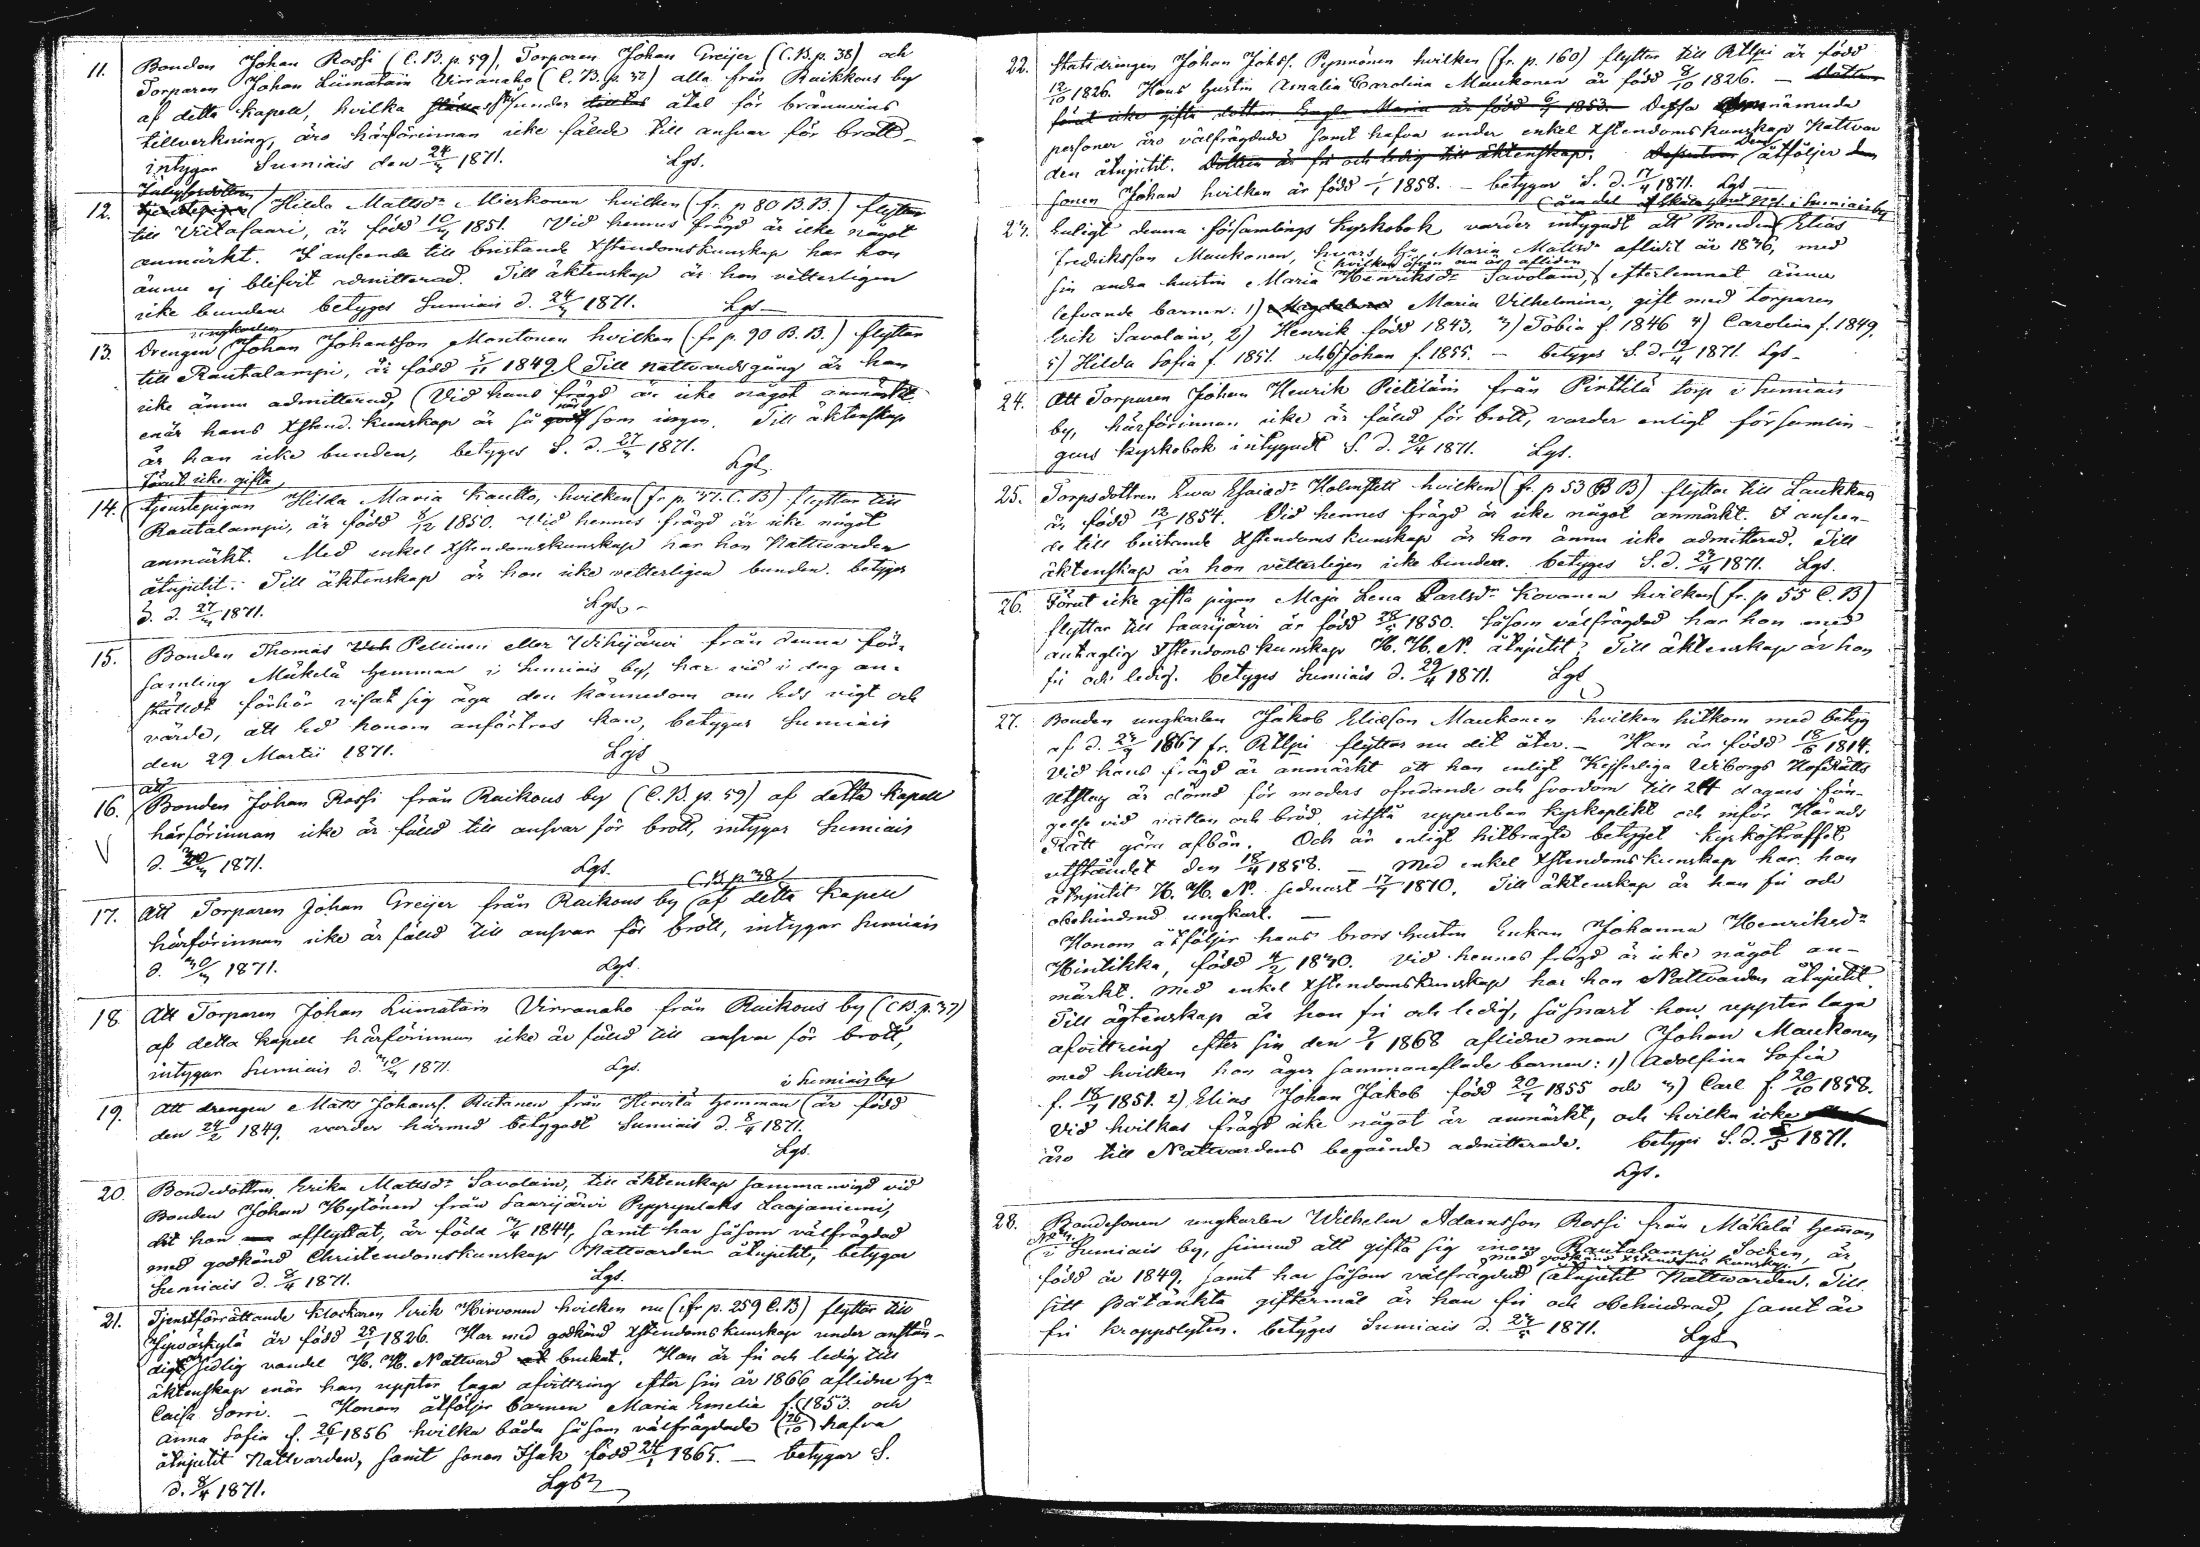 11. Bonden Johan Rossi (C.B. p. 59), Torparen Johan Greijer (C.B. p. 38) och
Torparen Johan Liimatain Virranaho (C.B. p. 37) alla från Raikkous by
af detta kapell, hvilka under åtal för brännvins
tillverkning, äro härförinnan icke fälde till ansvar för brott
intygar Sumiais den 24/3 1871. Lgs.
12. Hilda Mattsdr Mieskonen hvilken (fr. p 80 B.B.) flyttar
till Viitasaari, är född 10/3 1851. Vid hennes frägd är icke något
anmärkt. I anseende till bristande Xstendomskunskap har hon
ännu ej blifvit admitterad. Till äktenskap är hon vetterligen
icke bunden betyges Sumiais d. 24/3 1871. Lgs
ungkarlen
13. Drengen Johan Johansson Montonen hvilken (fr p. 90 B.B.) flyttar
till Rautalampi, är född 1849 Till nattvardsgång är han
icke ännu admitterad, (Vid hans frägd är icke något anmärkt
enär hans Xstend. kunskap är så godt som ingen. Till äktenskap
är han icke bunden, betyges S. d. 27/3 1871. Lgs.
förut icke gifta
14. tjenstepigan Hilda Maria Kautto, hvilken (fr p. 37. C.B) flyttar till
Rautalampi, är född 8/12 1850. Vid hennes frägd är icke något
anmärkt. Med enkel Xstendomskunskap har hon Nattvarden
åtnjutit. Till äktenskap är hon icke vetterligen bunden. betyges
S. d. 27/3 1871. Lgs.
15. Bonden Thomas Pellinen eller Vihijärvi från denna för-
samling Mäkelä hemman i Sumiais by, har vid i dag an-
stäldt förhör visat sig äga den kännedom om Eds vigt och
värde, att ed honom anförtros kan, betygar Sumiais
den 29 Martii 1871. Lgs
att
16. Bonden Johan Rossi från Raikous by (C.B. p. 59) af detta kapell
härförinnan icke är fälld till ansvar för brott, intygar Sumiais
d. 30/3 1871. Lgs.
C.B. p. 38
17. Att Torparen Johan Greijer från Raikous by af detta kapell
härförinnan icke är fälld till ansvar för brott, intygar Sumiais
d. 30/3 1871. Lgs.
18. Att Torparen Johan Liimatain Virranaho från Raikous by (C.B. p. 37)
af detta kapell härförinnan icke är fälld till ansvar för brott,
intygar Sumiais d. 30/3 1871. Lgs.
i Sumiais by
19. Att drengen Matts Johanss. Rutanen från hemman är född
den 24/2 1849. varder härmed betygadt Sumiais d. 8/4 1871.
Lgs.
20. Bondedottren Erika Mattsdr Savolain, till äktenskap sammanvigd vid
Bonden Johan Hytönen från Saarijärvi Pyyrynlaks Laajaniemi,
dit hon afflyttat, är född 1844, samt har såsom välfrägdad
med godkänd Christendomskunskap Nattvarden åtnjutit, betygar
Sumiais d. 8/4 1871. Lgs.
21. Tjenstförrättande klockaren Erik Hirvonen hvilken nu (fr p. 259 C.B) flyttar till
Jyväskylä är född 25/1 1826. Har med godkänd Xstendomskunskap under anstän-
digt sedlig vandel H. H. Nattvard brukat. Han är fri och ledig till
äktenskap enär han uppter laga afvittring efter sin år 1866 aflidne hu
Caisa Sorri. Honom åtföljer barnen Maria Emelia f. 1853. och
Anna Sofia f. 26/1 1856 hvilka båda såsom välfrägdade hafva
åtnjutit Nattvarden, samt sonen Isak född 24/1 1865. betygar S.
d. 8/4 1871. Lgs
22. Statsdrengen Johan Johss. Pynnönen hvilken (fr. p. 160) flyttar till Rtlpi är född
12/10 1826. Hans hustru Amalia Carolina Maukonen är född 8/10 1826.
förut icke gifta dottren Maria är född 1853. Dessa nämnda
personer äro välfrägdade samt hafva under enkel Xstendomskunskap Nattvar
den åtnjutit. Dottren är fri och ledig till äktenskap. åtföljer
sonen Johan hvilken är född 1/1 1858. betygar S. d. 17/4 1871. Lgs
23. Enligt denna församlings kyrkobok varder intygadt att Bonden Elias
Fredriksson Maukonen, hvars hu Maria Mattsdr aflidit år 1836, med
hvilken äfven nu är afliden
sin andra hustru Maria Henriksdr Savolain, efterlemnat ännu
lefvande barnen: 1) Maria Vilhelmina, gift med torparen
Erik Savolain, 2) Henrik född 1843, 3) Tobias f. 1846 4) Carolina f. 1849,
5) Hilda Sofia f. 1851. och 6) Johan f. 1855. betyges S. d. 19/4 1871. Lgs
24. Att Torparen Johan Henrik Pietiläin från Pirttilä torp i Sumiais
by, härförinnan icke är fälld för brott, varder enligt församlin-
gens kyrkobok intygadt S. d. 20/4 1871. Lgs.
25. Torpsdottren Ewa Esaiadr Holmstell hvilken (fr. p 53 B B) flyttar till Laukkas
är född 12/1 1854. Vid hennes frägd är icke något anmärkt. I anseen-
de till bristande Xstendomskunskap är hon ännu icke admitterad. Till
äktenskap är hon vetterligen icke bunden. betyges S. d. 23/4 1871. Lgs.
26. Förut icke gifta pigan Maja Lena Carlsdr Kovanen hvilken (fr. p 55 C.B)
flyttar till Saarijärvi är född 1850. Såsom välfrägdad har hon med
antaglig Xstendomskunskap H. H. N. åtnjutit. Till äktenskap är hon
fri och ledig. betyges Sumiais d. 29/4 1871. Lgs
27. Bonden ungkarlen Jakob Eliesson Maukonen hvilken hitkom med betyg
af d. 1867 fr. Rtlpi flyttar nu dit åter. Han är född 18/6 1814.
Vid hans frägd är anmärkt att han enligt Kejserliga Wiborgs HofRätts
Utslag är dömd för moders ofredande och svordom till 24 dagars fän-
gelse vid vatten och bröd, utstå uppenbar kyrkoplikt och inför Härads
Rätt göra afbön. Och är enligt hitbragta betyget kyrkostraffet
utståndet den 18/4 1858. Med enkel Xstendomskunskap har han
åtnjutit H. H. N. sednast 17/7 1870. Till äktenskap är han fri och
obehindrad ungkarl.
Honom åtföljer hans brors hustru Enkan Johanna Henriksdr
Hintikka, född 4/2 1830. Vid hennes frägd är icke något an-
märkt. Med enkel Xstendomskunskap har hon Nattvarden åtnjutit.
Till ägtenskap är hon fri och ledig, såsnart hon uppter laga
afvittring efter sin den 1868 aflidne man Johan Maukonen
med hvilken hon äger sammanaflade barnen: 1) Adolfina Sofia
f. 18/7 1851. 2) Elias Johan Jakob född 20/7 1855 och 3) Carl f. 20/10 1858.
Vid hvilkas frägd icke något är anmärkt, och hvilka icke
äro till Nattvardens begående admitterade. betyges S. d. 1871.
Lgs.
28. Bondesonen ungkarlen Wilhelm Adamsson Rossi från Mäkelä heman
i Sumiais by, sinnad att gifta sig inom Rautalampi Socken, är
med godkänd Xstendoms kunskap
född år 1849, samt har såsom välfrägdad åtnjutit Nattvarden. Till
sitt påtänkta giftermål är han fri och obehindrad, samt är
fri kroppslyten. betyges Sumiais d. 1871. Lgs